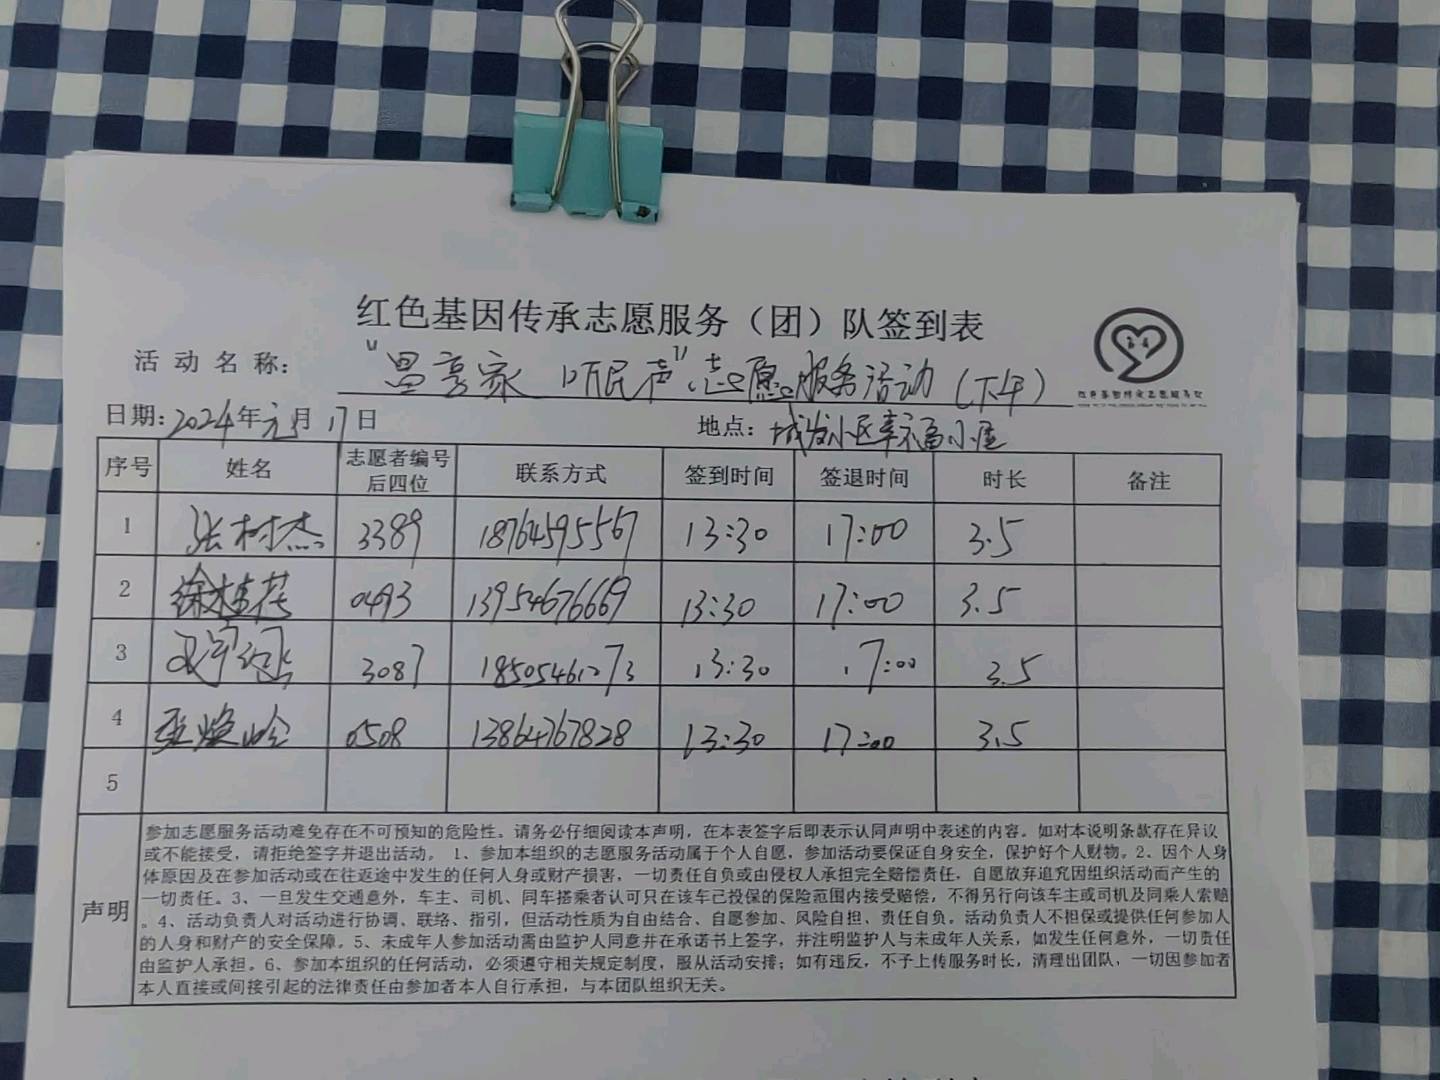 红色基因传承志愿服务（团）队签到表
活动名称： "昌享家 听民声"志愿服务活动（下午）
日期：2024年元月17日 地点：城发小区幸福小屋
序号 姓名 志愿者编号后四位 联系方式 签到时间 签退时间 时长 备注
1 张树杰 3389 18764595567 13:30 17:00 3.5
2 徐桂花 0493 13954676669 13:30 17:00 3.5
3 3087 18505461273 13:30 17:00 3.5
4 0508 13864767828 13:30 17:00 3.5
5
声明
参加志愿服务活动难免存在不可预知的危险性。请务必仔细阅读本声明，在本表签字后即表示认同声明中表述的内容。如对本说明条款存在异议
或不能接受，请拒绝签字并退出活动。 1、参加本组织的志愿服务活动属于个人自愿，参加活动要保证自身安全，保护好个人财物。2、因个人身
体原因及在参加活动或在往返途中发生的任何人身或财产损害，一切责任自负或由侵权人承担完全赔偿责任，自愿放弃追究因组织活动而产生的
一切责任。3、一旦发生交通意外，车主、司机、同车搭乘者认可只在该车已投保的保险范围内接受赔偿，不得另行向该车主或司机及同乘人索赔
。4、活动负责人对活动进行协调、联络、指引，但活动性质为自由结合、自愿参加、风险自担、责任自负。活动负责人不担保或提供任何参加人
的人身和财产的安全保障。5、未成年人参加活动需由监护人同意并在承诺书上签字，并注明监护人与未成年人关系，如发生任何意外，一切责任
由监护人承担。6、参加本组织的任何活动，必须遵守相关规定制度，服从活动安排；如有违反，不予上传服务时长，清理出团队，一切因参加者
本人直接或间接引起的法律责任由参加者本人自行承担，与本团队组织无关。